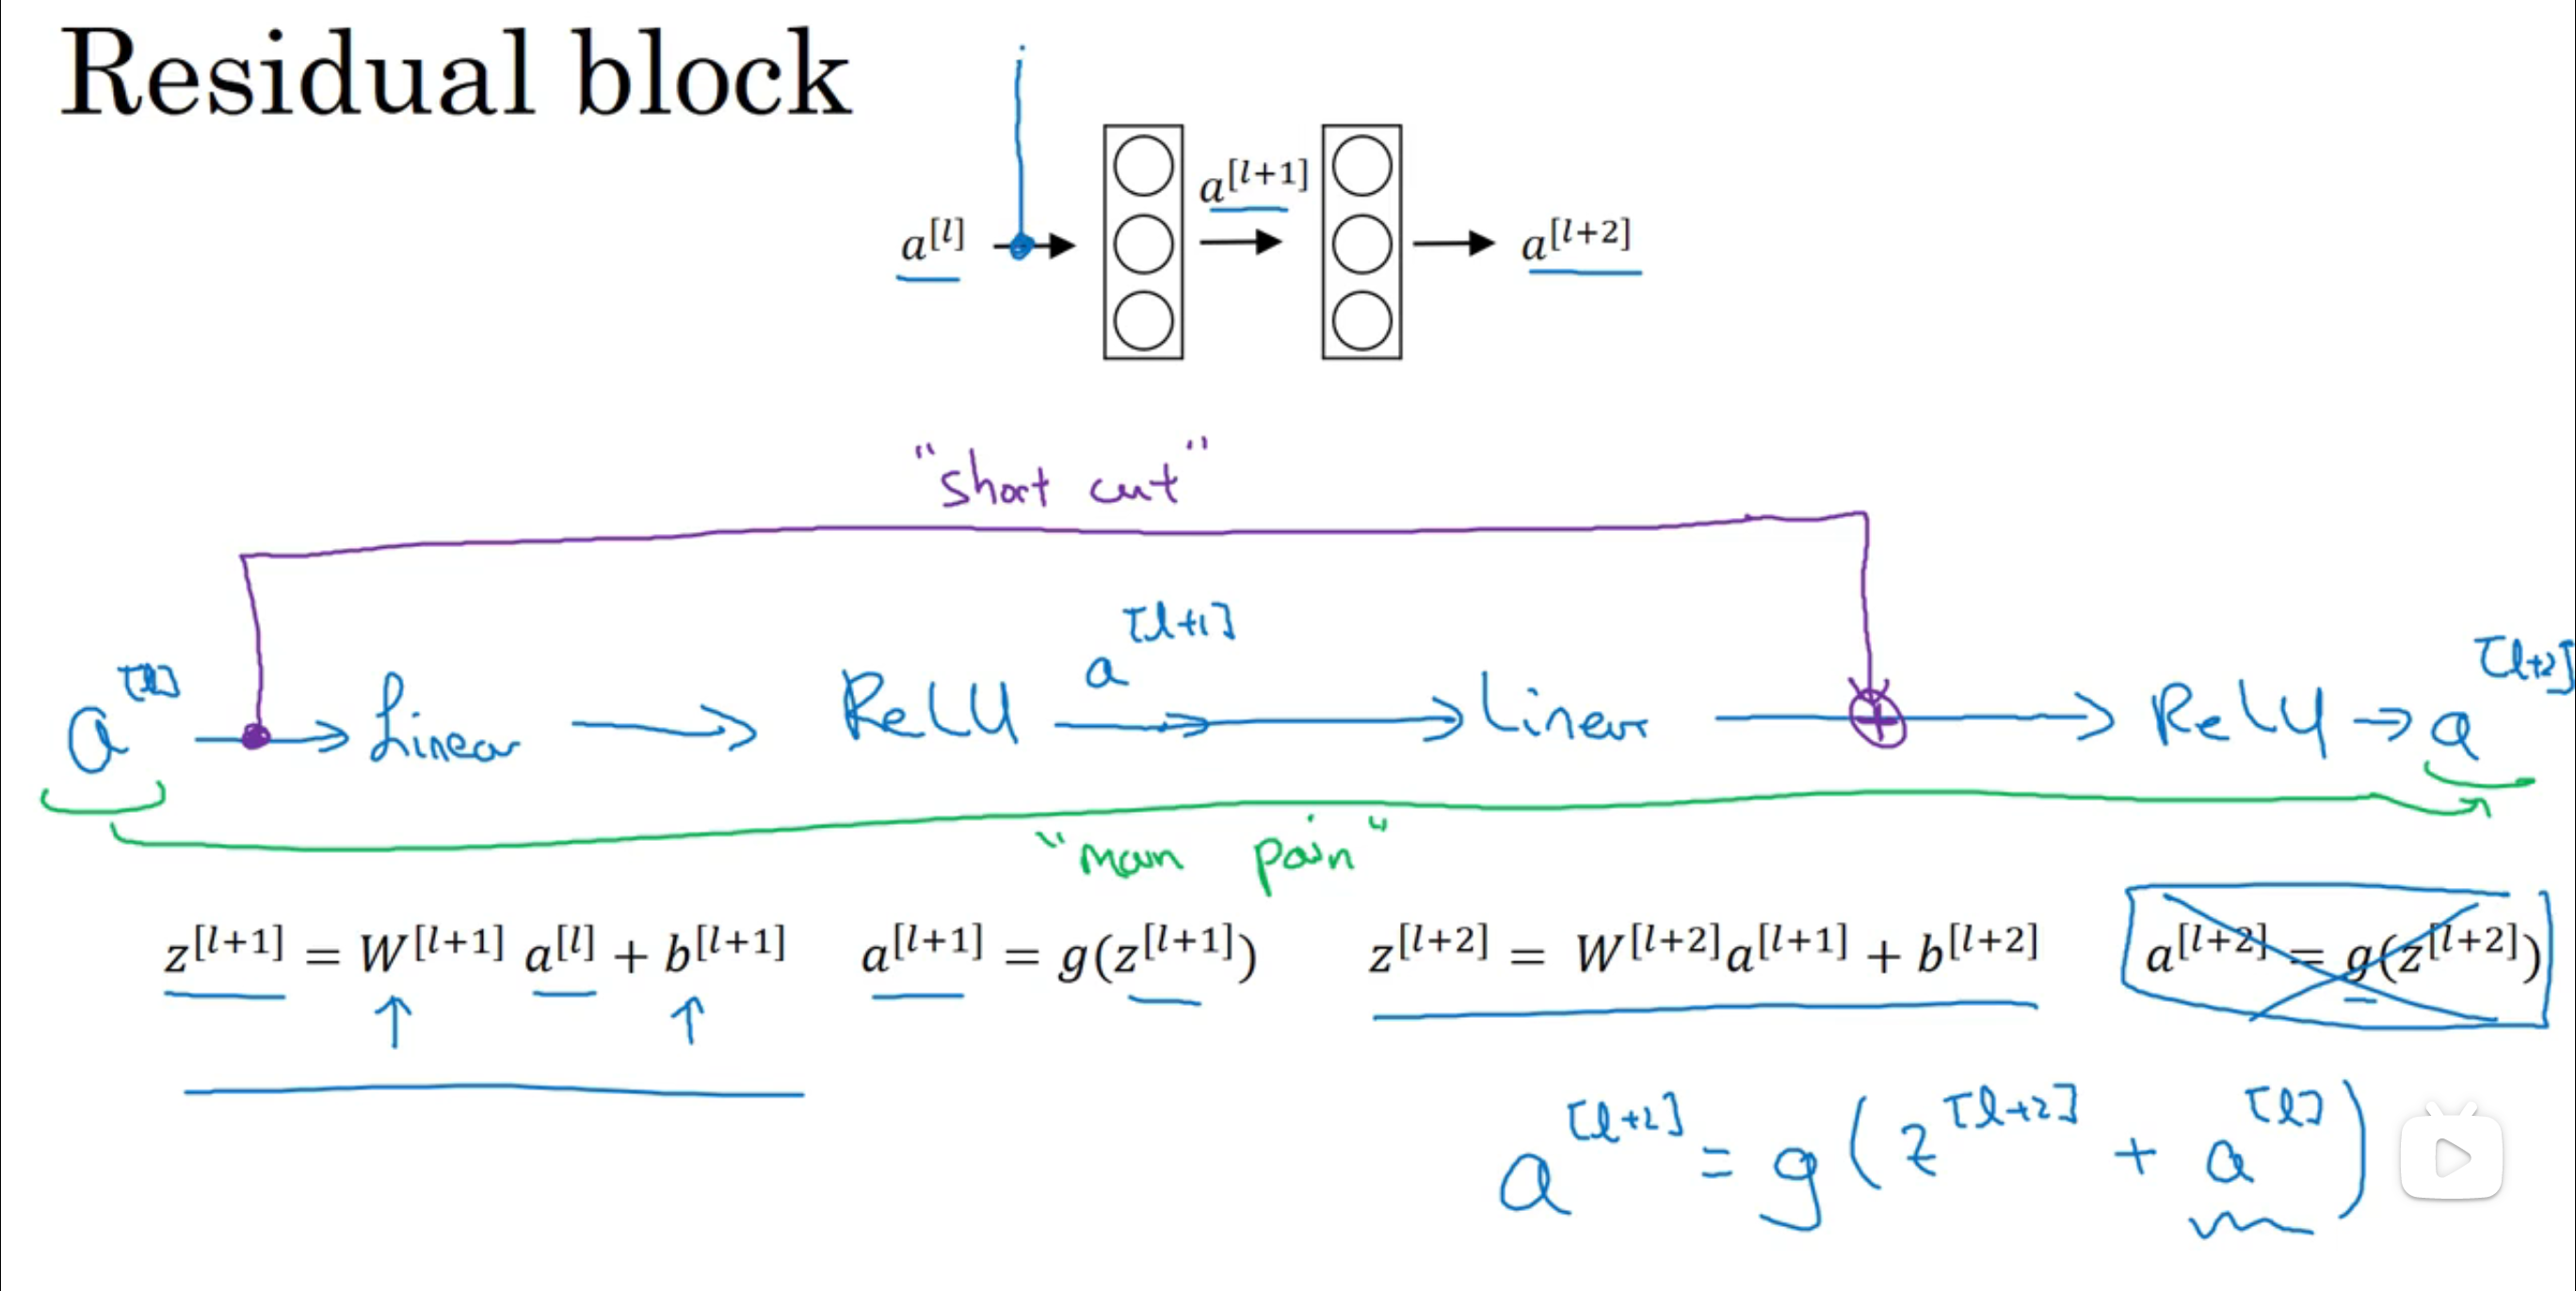 Residual block
a^[l] a^[l+1] a^[l+2]
"short cut"
a^[l] → Linear → ReLU a^[l+1] → Linear ⊕ → ReLU → a^[l+2]
"main pain"
z^[l+1] = W^[l+1] a^[l] + b^[l+1] a^[l+1] = g(z^[l+1]) z^[l+2] = W^[l+2]a^[l+1] + b^[l+2] a^[l+2] = g(z^[l+2])
a^[l+2] = g(z^[l+2] + a^[l])